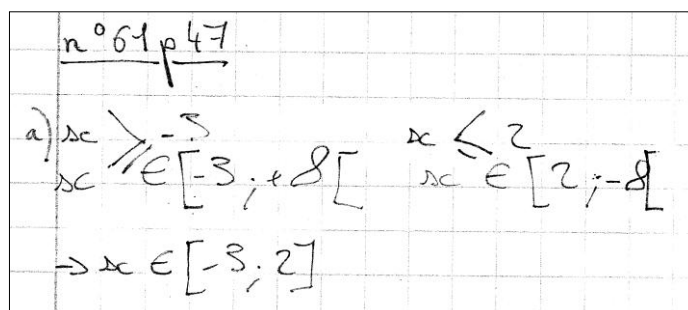 n°61 p47
a) x ⩾ -3 x ⩽ 2
x ∈ [-3 ; +8[ x ∈ [2 ; -8[
→ x ∈ [-3 ; 2]